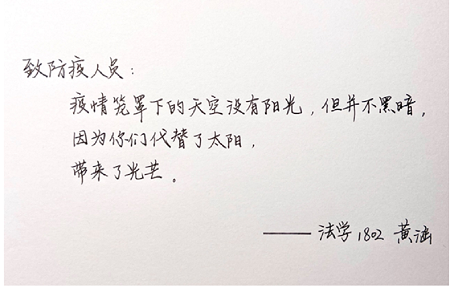 致防疫人员：
疫情笼罩下的天空没有阳光，但并不黑暗，
因为你们代替了太阳，
带来了光芒。
——法学1802 黄涵